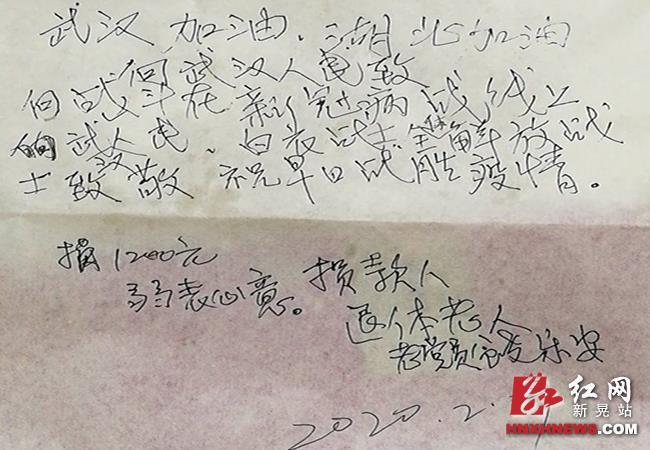 武汉加油,湖北加油
向战斗在武汉人民致
向战斗在新冠病战线上
的武汉人民、白衣战士全体解放战
士致敬 祝早日战胜疫情。
捐1200元
弱表心意。
损款人
退休老人
老党员 乐安
2020.2.
红网
新晃站
HNXHNEWS.COM